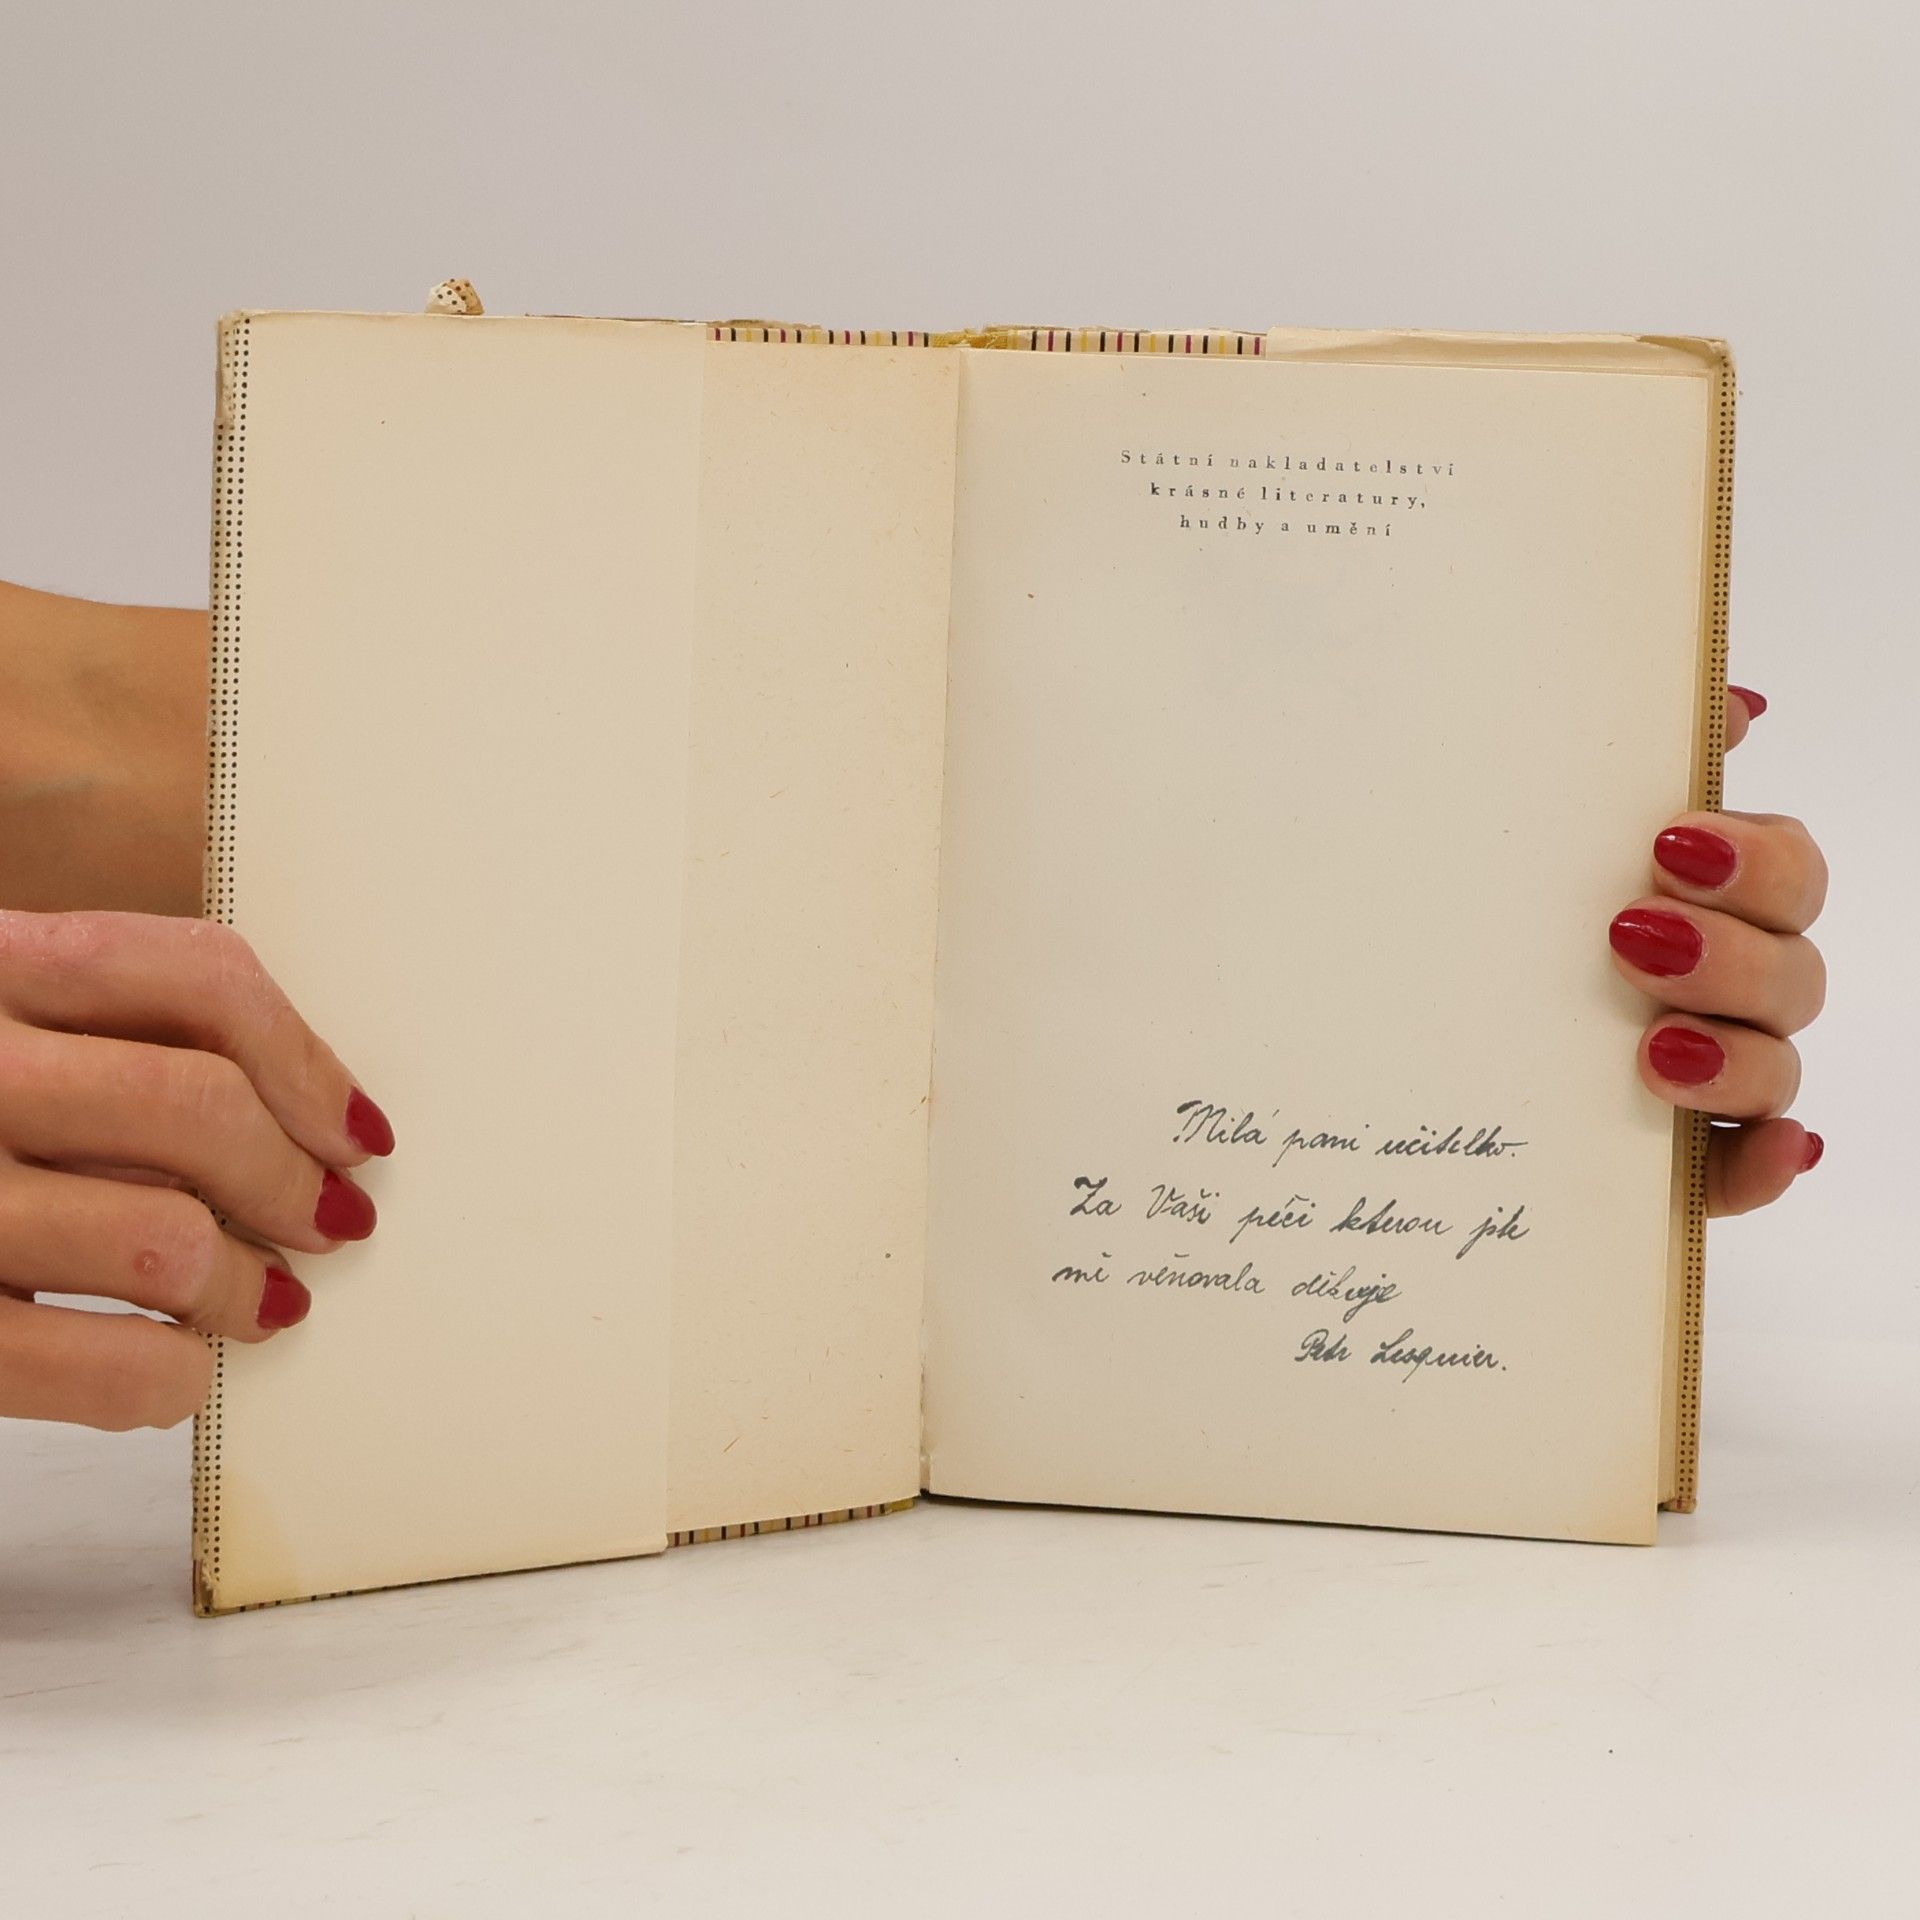 Státní nakladatelství
krásné literatury,
hudby a umění
Milá pani učitelko.
Za Vaši péči kterou jste
mě věnovala děkuje
Petr Lesquier.